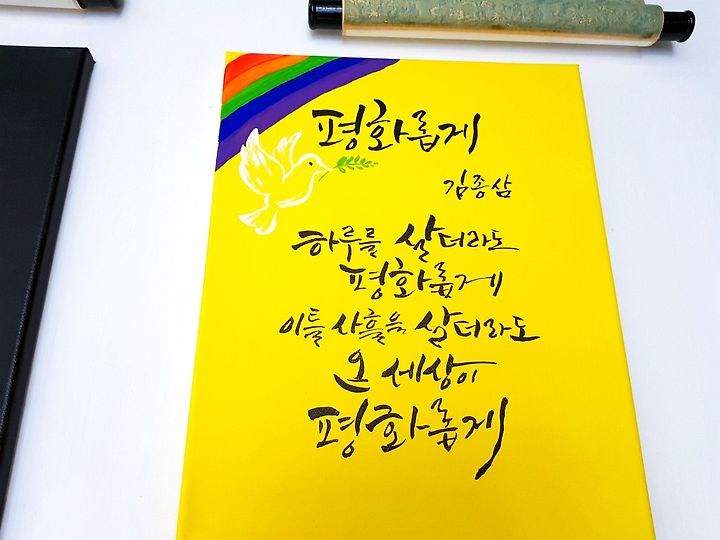 평화롭게
김종삼
하루를 살더라도
평화롭게
이틀 사흘을 살더라도
온 세상이
평화롭게